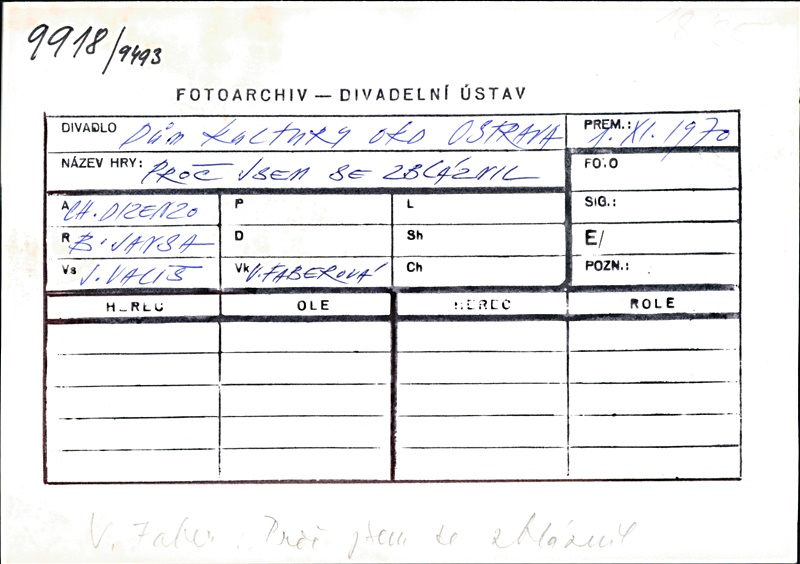 9918/9493
FOTOARCHIV — DIVADELNÍ ÚSTAV
DIVADLO Dům kultury OKD OSTRAVA PREM.: 1. XI. 1970
NÁZEV HRY: PROČ JSEM SE ZBLÁZNIL FOTO
A CH. DIZENZO P L SIG.:
R B. JANSA D Sh E/
Vs J. VALIŠ Vk V. FABEROVÁ Ch POZN.:
HEREC OLE HEREC ROLE
V. Faber: Proč jsem se zbláznil